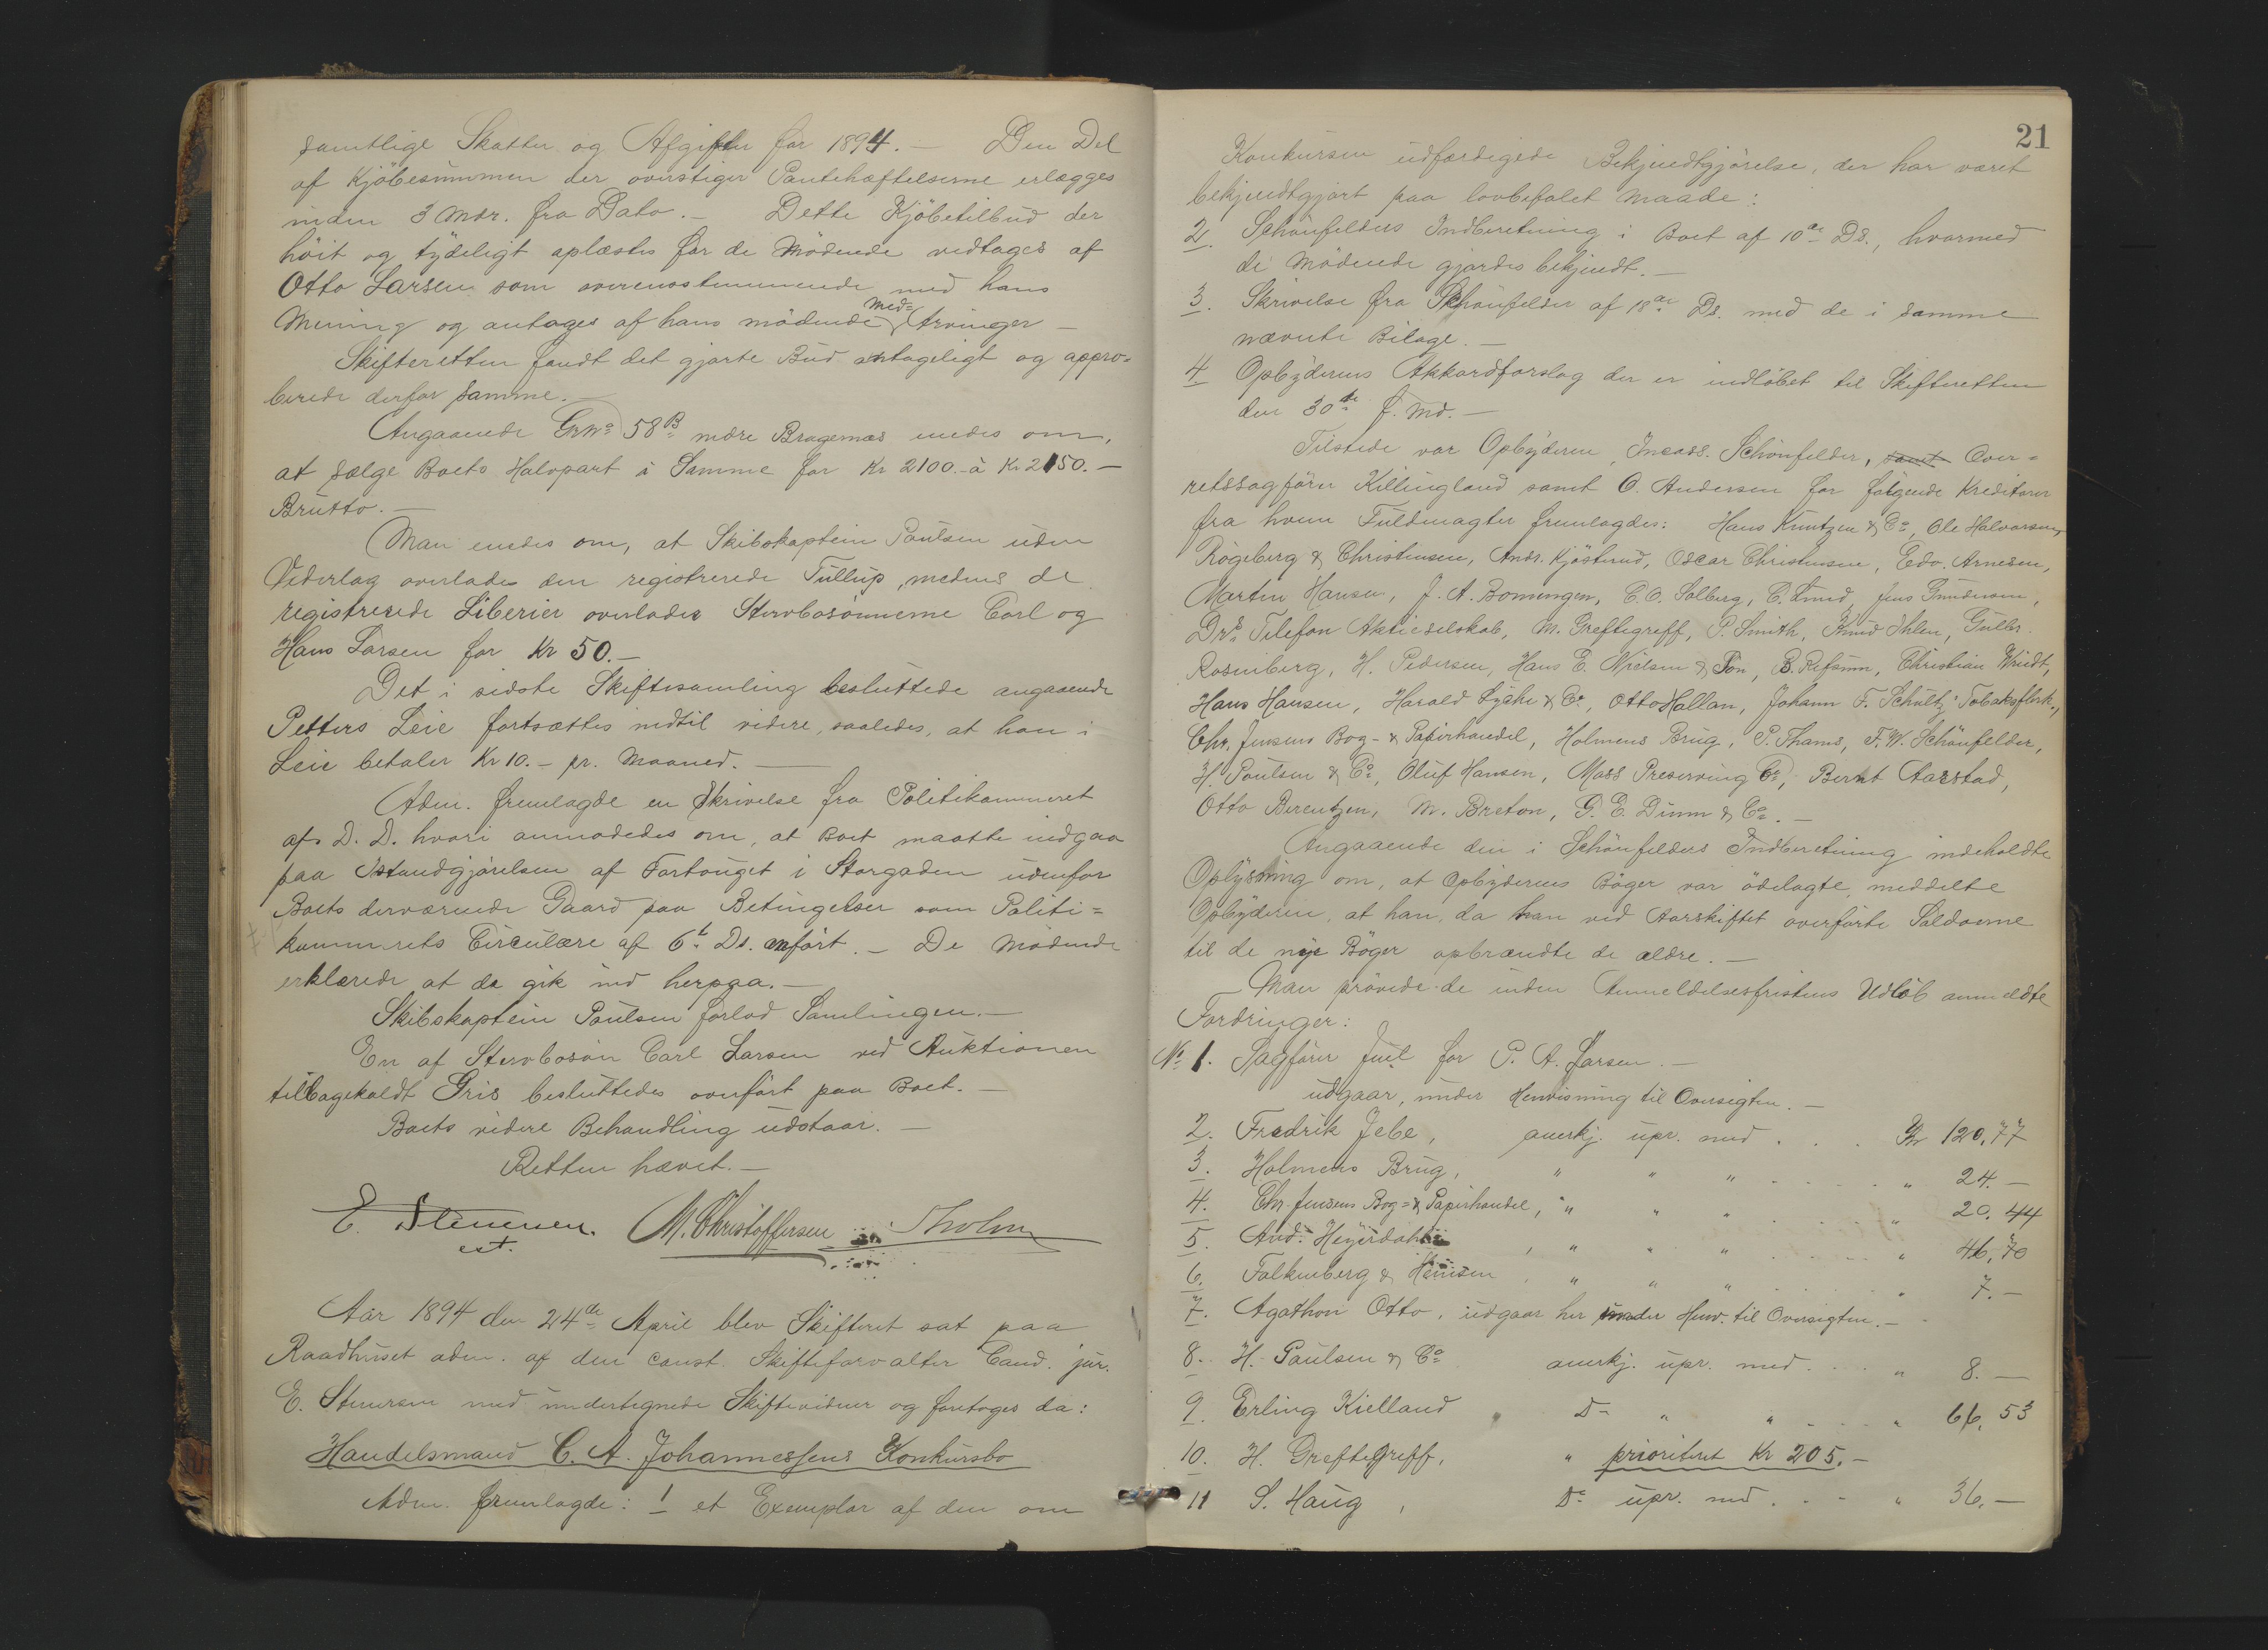 samtlige Skatter og Afgifter for 1894. — Den Del
af Kjöbesummen der overstiger Pantehæftelserne erlægges
inden 3 Mdr. fra Dato. — Dette Kjöbetilbud der
höit og tydeligt oplæstes for de Mödende vedtages af
Otto Larsen som overensstemmende med hans
Mening og antages af hans mödende Med= Arvinger —
Skifteretten fandt det gjorte Bud antageligt og appro=
berede derfor samme. —
Angaaende GrNo 58B nedre Bragernæs enedes om,
at sælge Boets Halvpart i Samme for Kr 2100.- à Kr 2150. —
Brutto. —
Man enedes om, at Skibskaptein Poulsen uden
Vederlag overlades den registrerede Tullup, medens de
registrerede Liberier overlades Stervbosönnerne Carl og
Hans Larsen for Kr 50. —
Det i sidste Skiftesamling besluttede angaaende
Petters Leie fortsættes indtil videre, saaledes, at han i
Leie betaler Kr 10. – pr. Maaned. —
Adm. fremlagde en Skrivelse fra Politikammeret
af D. D. hvori anmodedes om, at Boet maatte indgaa
paa Istandgjörelsen af Fortouget i Storgaden udenfor
Boets derværende Gaard paa Betingelser som Politi=
kammerets Circulære af 6t Ds. anfört. — De Mödende
erklærede at de gik ind herpaa. —
Skibskaptein Poulsen forlod Samlingen. —
En af Stervbosön Carl Larsen ved Auktionen
tilbagekaldt Gris besluttedes overfört paa Boet. —
Boets videre Behandling udstaar. —
Retten hævet. —
E. Stenersen. M. Christoffersen Tholm
cst.
Aar 1894 den 24de April blev Skifteret sat paa
Raadhuset adm. af den const. Skifteforvalter Cand. jur.
E. Stenersen med undertegnede Skiftevidner og foretoges da:
Handelsmand C. A. Johannessens Konkursbo
Adm. fremlagde: 1 et Exemplar af den om
21
Konkursen udfærdigede Bekjendtgjörelse, der har været
bekjendtgjort paa lovbefalet Maade:
2. Schönfelders Indberetning i Boet af 10de Ds., hvormed
de Mödende gjordes bekjendt. —
3. Skrivelse fra Schönfelder af 18de Ds. med de i samme
nævnte Bilage. —
4 Opbyderens Akkordforslag der er indlöbet til Skifteretten
den 30te f. Md. —
Tilstede var Opbyderen, Incass. Schönfelder, samt Over=
retssagförer Killingland samt O. Andersen for fölgende Kreditorer
fra hvem Fuldmagter fremlagdes: Hans Kiøntzen & Co, Ole Halvorsen,
Rögeberg & Christensen, Andr. Kjösterud, Oscar Christensen, Edv. Arnesen,
Martin Hansen, J. A. Bonnengen, C. O. Solberg, C. Lund, Jens Gundersen,
Drs Telefon Aktieselskab, M. Greftegreff, P. Smith, Knud Ihlen, Gulbr.
Rosenberg, H. Pedersen, Hans E. Nielsen & Sön, B. Refsum, Christian Wriedt,
Hans Hansen, Harald Lyche & Co, Otto Hallan, Johann F. Schultz' Tobaksfbrk.,
Chr. Jensens Bog- & Papirhandel, Holmens Brug, P. Thams, F. W. Schönfelder,
H. Poulsen & Co, Oluf Hansen, Moss Preserving Co, Bernt Aarstad,
Otto Berentzen, M. Breton, G. E. Dunn & Co. —
Angaaende den i Schönfelders Indberetning indeholdte
Oplysning om, at Opbyderens Böger var ödelagte, meddelte
Opbyderen, at han, da han ved Aarskiftet overförte Saldoerne
til de nye Böger opbrændte de ældre. —
Man prövede de inden Anmeldelsesfristens Udlöb anmeldte
Fordringer:
No 1. Sagförer Juul for P. A. Larsen. —
udgaar, under Henvisning til Oversigten. —
2. Fredrik Jebe, anerkj. upr. med . . . Kr 120,77
3. Holmens Brug, " " " . . . . " 24. —
4. Chr. Jensens Bog= & Papirhandel, " " " . . . . " 20.44
5. And. Heyerdahl, " " " . . . . " 46,70
6. Falkenberg & Hensen, " " " . . . . " 7. —
7. Agathon Otto, udgaar her under Henv. til Oversigten. —
8. H. Poulsen & Co anerkj. upr. med . . . " 8. —
9. Erling Kielland Do " " . . . " 66,53
10. H. Greftegreff, " prioriteret Kr 205. —
11 S. Haug, Do upr. med . . . " 36. —